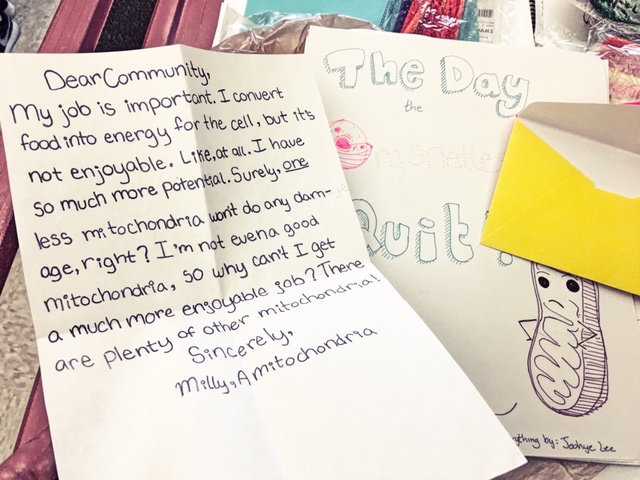 Dear Community,
My job is important. I convert
food into energy for the cell, but it's
not enjoyable. Like, at all. I have
so much more potential. Surely, one
less mitochondria won't do any dam-
age, right? I'm not even a good
mitochondria, so why can't I get
a much more enjoyable job? There
are plenty of other mitochondria!
Sincerely,
Milly, A mitochondria
The Day
the
Organelles
Quit!
by: Lee